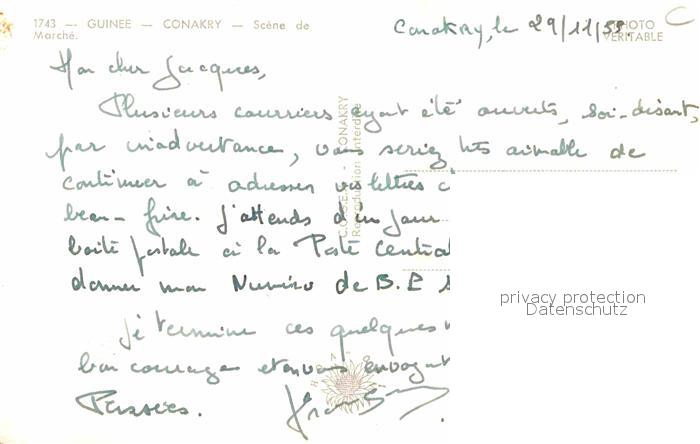 1743 — GUINEE — CONAKRY — Scène de
Marché.
PHOTO
VÉRITABLE
C
Conakry, le 29/11/58.
Mon cher Jacques,
Plusieurs courriers ayant été ouverts, soi-disant,
par inadvertance, vous seriez très aimable de
continuer à adresser vos lettres c
beau-frère. J'attends d'un jour
boîte postale à la Poste Central
donner mon Numéro de B.P
Je termine ces quelques
bon courage et en vous envoyant
Pensées.
CONAKRY
Reproduction Interdite
privacy protection
Datenschutz